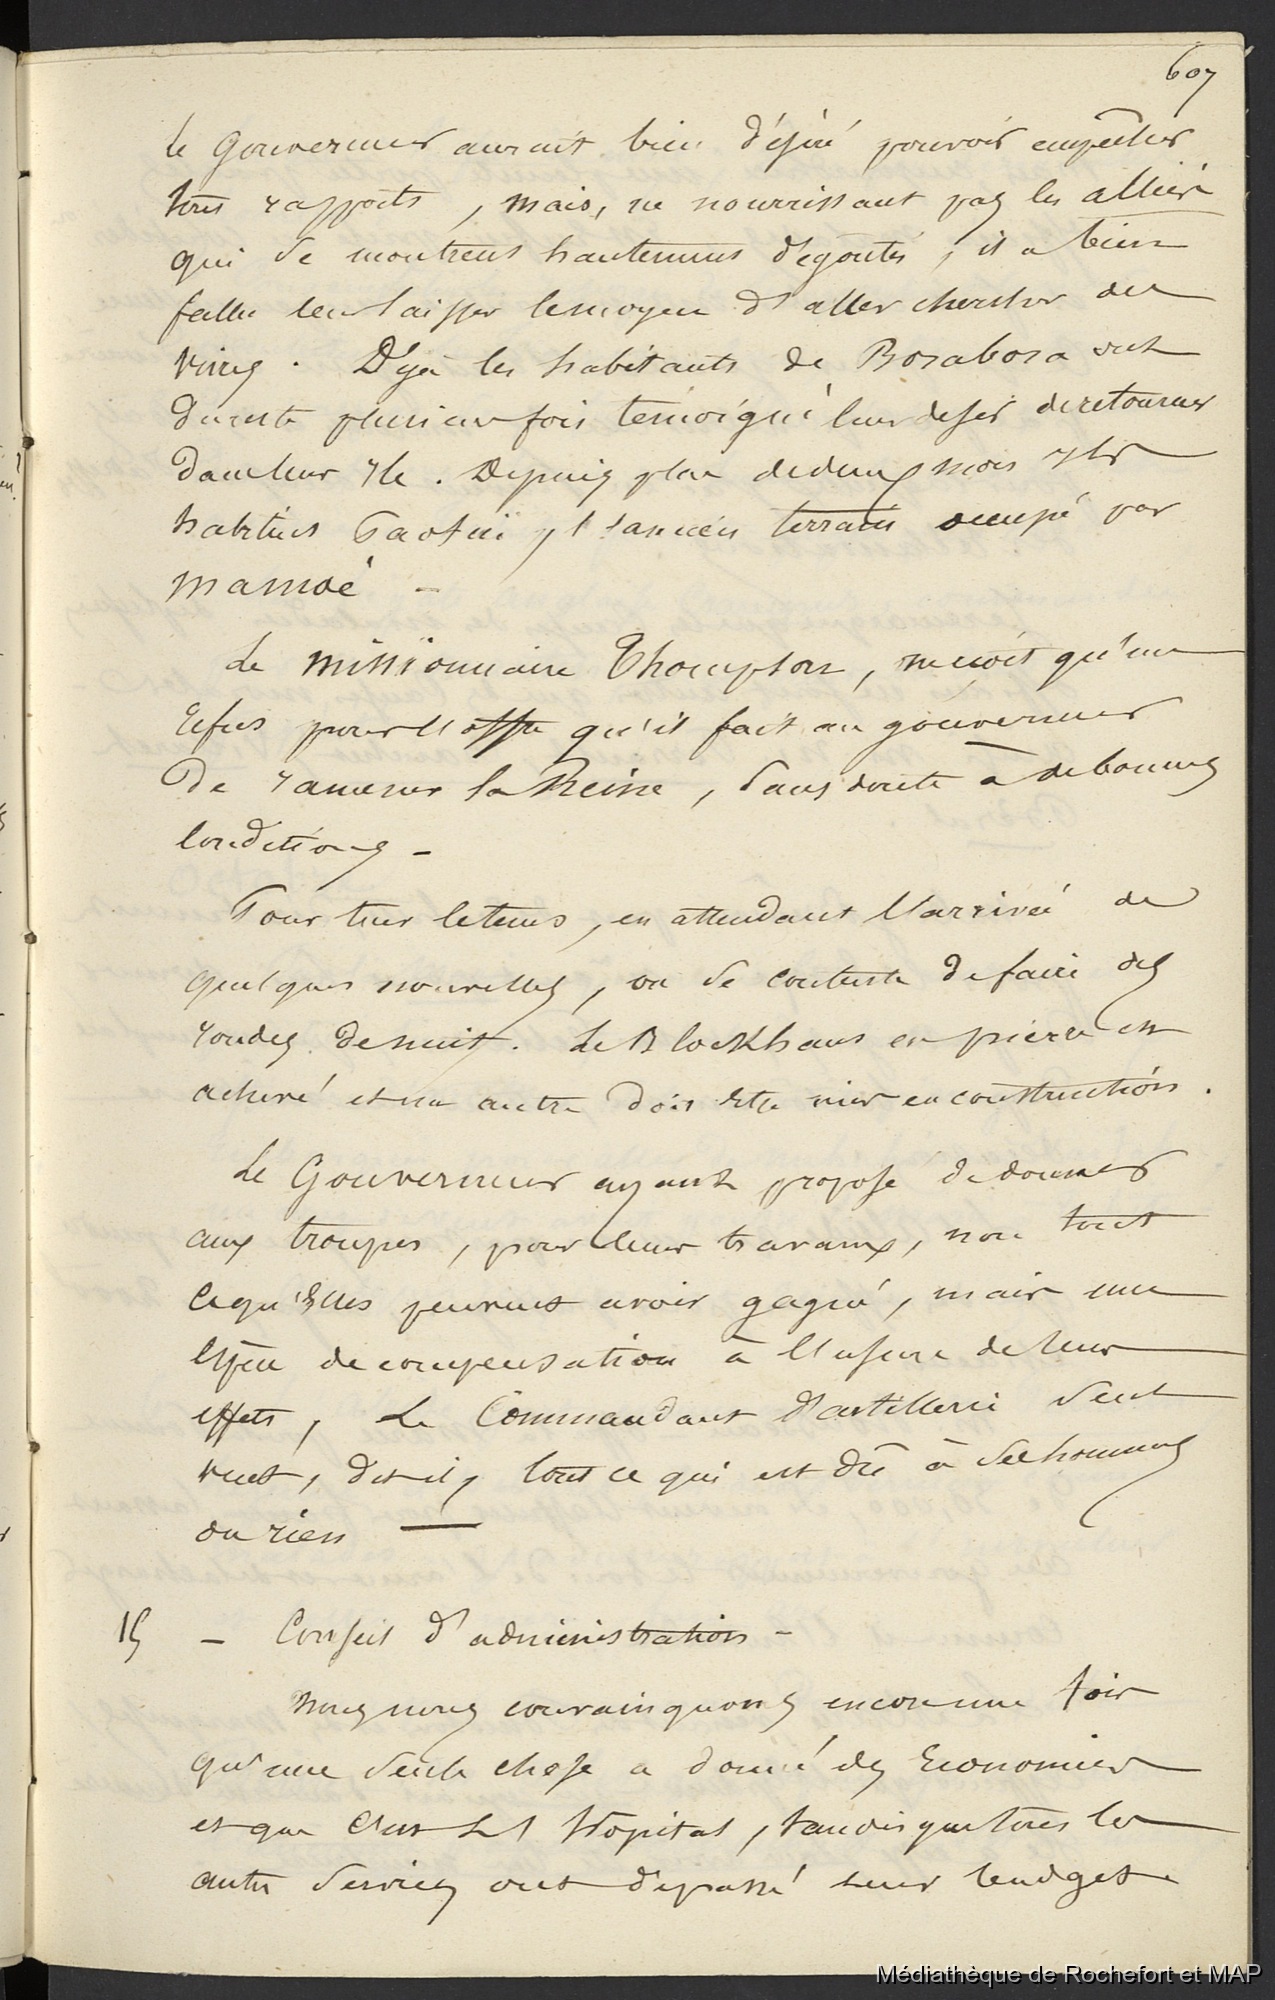 607
le Gouverneur aurait bien désiré pouvoir empêcher
tous rapports, mais, ne nourrissant pas les alliés
qui se montrent hautement dégoutés, il a bien
fallu leur laisser le moyen d'aller chercher des
vivres. Déjà les habitants de Borabora ont
du reste plusieurs fois témoigné leur désir de retourner
dans leur Ile. Depuis plus de deux mois Ils
habitent l'ancien terrain occupé par
Mamoé -
Le missionnaire Thompson, ne reçoit qu'un
refus pour l'offre qu'il fait au gouverneur
de ramener la Reine, sans doute à de bonnes
Conditions -
Pour tuer le tems, en attendant l'arrivée de
quelques nouvelles, on se contente de faire des
rondes de nuit. Le Blockhaus en pierre est
achevé et un autre doit être mis en construction.
Le Gouverneur ayant proposé de donner
aux troupes, pour leurs travaux, non tout
ce qu'Elles peuvent avoir gagné, mais une
Espèce de compensation à l'usure de leurs
effets, Le Commandant d'artillerie seul
veut, dit-il, tout ce qui est dû à ses hommes
ou rien —
15 - Conseil d'administration -
Nous nous convainquons encore une fois
qu'une seule chose a donné des Economies
et que C'est L'hôpital, tandis que tous les
autres services ont dépassé leur budget.
Médiathèque de Rochefort et MAP